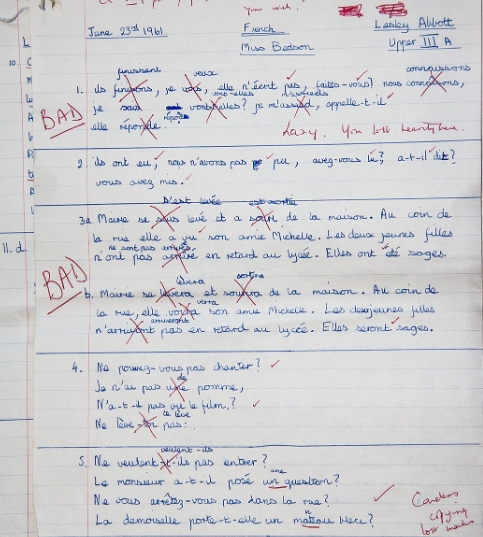 your work.
June 23rd 1961. French Lesley Abbott
Miss Bedson Upper III A
finissent veux connaissions
1. ils finissons, je vois, elle n'écrit pas, faites-vous? nous connaissons,
vont-elles m'assieds
BAD je sauf vont-elles? je m'assied, appelle-t-il
réponde
elle réponde. Lazy. You lost
2. ils ont eu, nous n'avons pas pu, avez-vous lu? a-t-il dit?
vous avez mis.
s'est levée est sortie
3a. Marie se levé et a sorti de la maison. Au coin de
la rue elle a vu son amie Michelle. Les deux jeunes filles
ne sont pas arrivées
n'ont pas arrivé en retard au lycée. Elles ont été sages.
BAD lèvera sortira
b. Marie se levera et de la maison. Au coin de
verra
la rue, elle voira son amie Michelle. Les deux jeunes filles
arriveront
n'arrivont pas en retard au lycée. Elles seront sages.
4. Ne pouvez-vous pas chanter?
de
Je n'ai pas une pomme,
N'a-t-il pas vu le film?
te lève
Ne lève-toi pas.
veulent-ils
5. Ne veulent-t-ils pas entrer?
une
Le monsieur a-t-il posé un question?
Ne vous arrêtez-vous pas dans la rue?
La demoiselle porte-t-elle un mateau bleu?
n
Careless
copying
lost marks
10.
11. d.